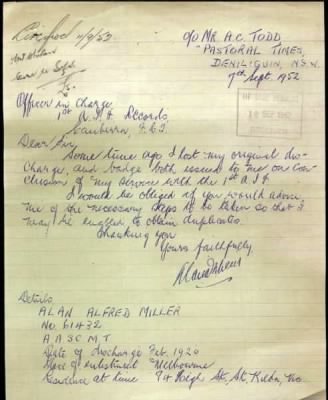 11/9/53
c/o Mr A.C. TODD
"PASTORAL TIMES,
DENILIQUIN, N.S.W.
7th Sept. 1952
Officer in Charge,
1st A.I.F Records,
Canberra, F.C.T.
Dear Sir,
Some time ago I lost my original dis-
charge, and badge both issued to me on con-
clusion of my service with the 1st A.I.F.
I would be obliged if you would advise
me of the necessary steps to be taken so that I
may be enabled to obtain duplicates
Thanking you
Yours faithfully
Details
ALAN ALFRED MILLER
No 61432
A A S C M T
Date of Discharge Feb. 1920
Place of enlistment Melbourne
Residence at time 74 High St, St. Kilda, Vic